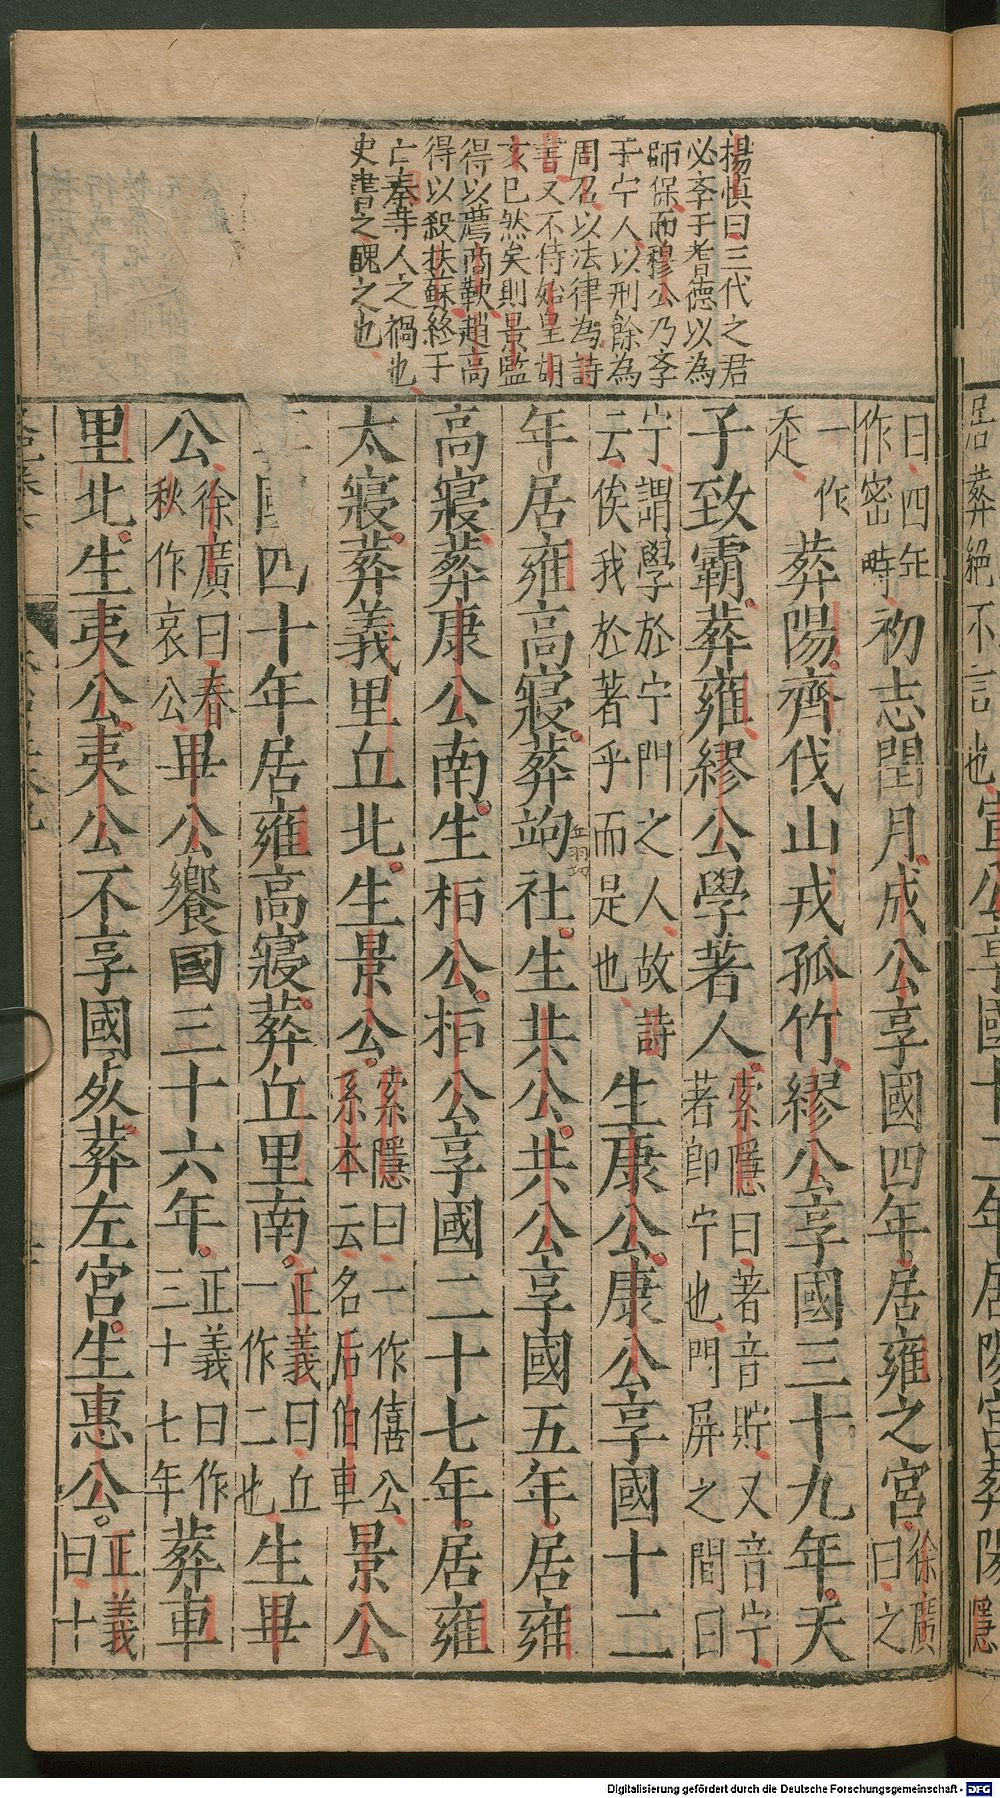 楊慎曰三代之君
必孝于耆德以為
師保而穆公乃孝
于宁人以刑餘為
周召以法律為詩
書又不待始皇胡
亥已然矣則景監
得以薦商鞅趙高
得以殺扶蘇終于
亡秦寺人之禍也
史書之醜之也
曰四年
作密畤初志閏月成公享國四年居雍之宮徐廣
曰之
一作
走葬陽齊伐山戎孤竹繆公享國三十九年天
子致霸葬雍繆公學著人索隱曰著音貯又音宁
著即宁也門屏之間曰
宁謂學於宁門之人故詩
云俟我於著乎而是也生康公康公享國十二
年居雍高寢葬竘社生共公共公享國五年居雍
高寢葬康公南生桓公桓公享國二十七年居雍
太寢葬義里丘北生景公索隱曰一作僖公
系本云名后伯車景公
國四十年居雍高寢葬丘里南正義曰丘
一作二也生畢
公徐廣曰春
秋作哀公畢公饗國三十六年正義曰作
三十七年葬車
里北生夷公夷公不享國死葬左宮生惠公正義
曰十
居葬絕不言也宣公享國十二年居陽宮葬陽隱
Digitalisierung gefördert durch die Deutsche Forschungsgemeinschaft - DFG